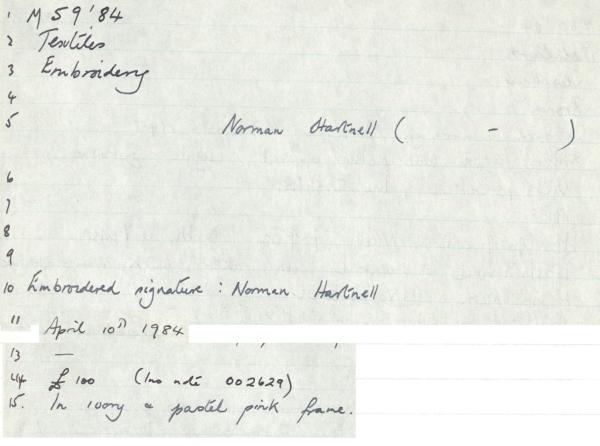 1 M 59'84
2 Textiles
3 Embroidery
4
5 Norman Hartnell ( - )
6
7
8
9
10 Embroidered signature : Norman Hartnell
11 April 10th 1984
13 —
14 £100 (Inv note 002629)
15. In ivory & pastel pink frame.